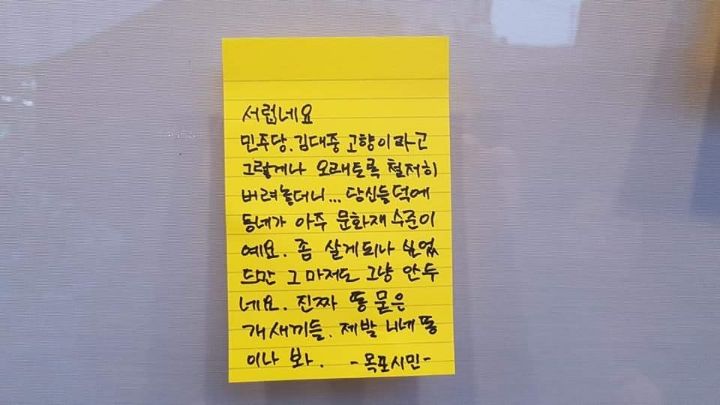 서럽네요
민주당, 김대중 고향이라고
그렇게나 오래토록 철저히
버려놓더니... 당신들덕에
동네가 아주 문화재수준이
예요. 좀 살게되나 싶었
드만 그마저도 그냥 안두
네요. 진짜 똥 묻은
개새끼들. 제발 니네 똥
이나 봐. -목포시민-